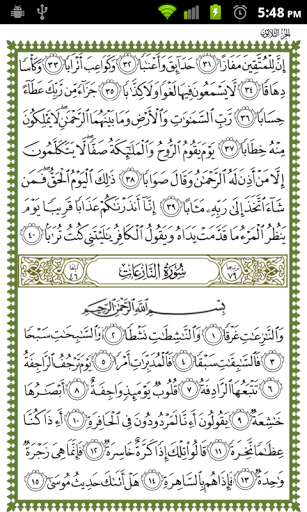 5:48 PM
الجزء الثلاثون
إِنَّ لِلْمُتَّقِينَ مَفَازًا ٣١ حَدَآئِقَ وَأَعْنَٰبًا ٣٢ وَكَوَاعِبَ أَتْرَابًا ٣٣ وَكَأْسًا
دِهَاقًا ٣٤ لَّا يَسْمَعُونَ فِيهَا لَغْوًا وَلَا كِذَّٰبًا ٣٥ جَزَآءً مِّن رَّبِّكَ عَطَآءً
حِسَابًا ٣٦ رَّبِّ ٱلسَّمَٰوَٰتِ وَٱلْأَرْضِ وَمَا بَيْنَهُمَا ٱلرَّحْمَٰنِ لَا يَمْلِكُونَ
مِنْهُ خِطَابًا ٣٧ يَوْمَ يَقُومُ ٱلرُّوحُ وَٱلْمَلَٰٓئِكَةُ صَفًّا لَّا يَتَكَلَّمُونَ
إِلَّا مَنْ أَذِنَ لَهُ ٱلرَّحْمَٰنُ وَقَالَ صَوَابًا ٣٨ ذَٰلِكَ ٱلْيَوْمُ ٱلْحَقُّ فَمَن
شَآءَ ٱتَّخَذَ إِلَىٰ رَبِّهِۦ مَـَٔابًا ٣٩ إِنَّآ أَنذَرْنَٰكُمْ عَذَابًا قَرِيبًا يَوْمَ
يَنظُرُ ٱلْمَرْءُ مَا قَدَّمَتْ يَدَاهُ وَيَقُولُ ٱلْكَافِرُ يَٰلَيْتَنِى كُنتُ تُرَٰبًۢا ٤٠
سُورَةُ النَّازِعَاتِ
٧٩
٤٦
بِسْمِ ٱللَّهِ ٱلرَّحْمَٰنِ ٱلرَّحِيمِ
وَٱلنَّٰزِعَٰتِ غَرْقًا ١ وَٱلنَّٰشِطَٰتِ نَشْطًا ٢ وَٱلسَّٰبِحَٰتِ سَبْحًا
٣ فَٱلسَّٰبِقَٰتِ سَبْقًا ٤ فَٱلْمُدَبِّرَٰتِ أَمْرًا ٥ يَوْمَ تَرْجُفُ ٱلرَّاجِفَةُ
٦ تَتْبَعُهَا ٱلرَّادِفَةُ ٧ قُلُوبٌ يَوْمَئِذٍ وَاجِفَةٌ ٨ أَبْصَٰرُهَا
خَٰشِعَةٌ ٩ يَقُولُونَ أَءِنَّا لَمَرْدُودُونَ فِى ٱلْحَافِرَةِ ١٠ أَءِذَا كُنَّا
عِظَٰمًا نَّخِرَةً ١١ قَالُوا۟ تِلْكَ إِذًا كَرَّةٌ خَاسِرَةٌ ١٢ فَإِنَّمَا هِىَ زَجْرَةٌ
وَٰحِدَةٌ ١٣ فَإِذَا هُم بِٱلسَّاهِرَةِ ١٤ هَلْ أَتَىٰكَ حَدِيثُ مُوسَىٰٓ ١٥